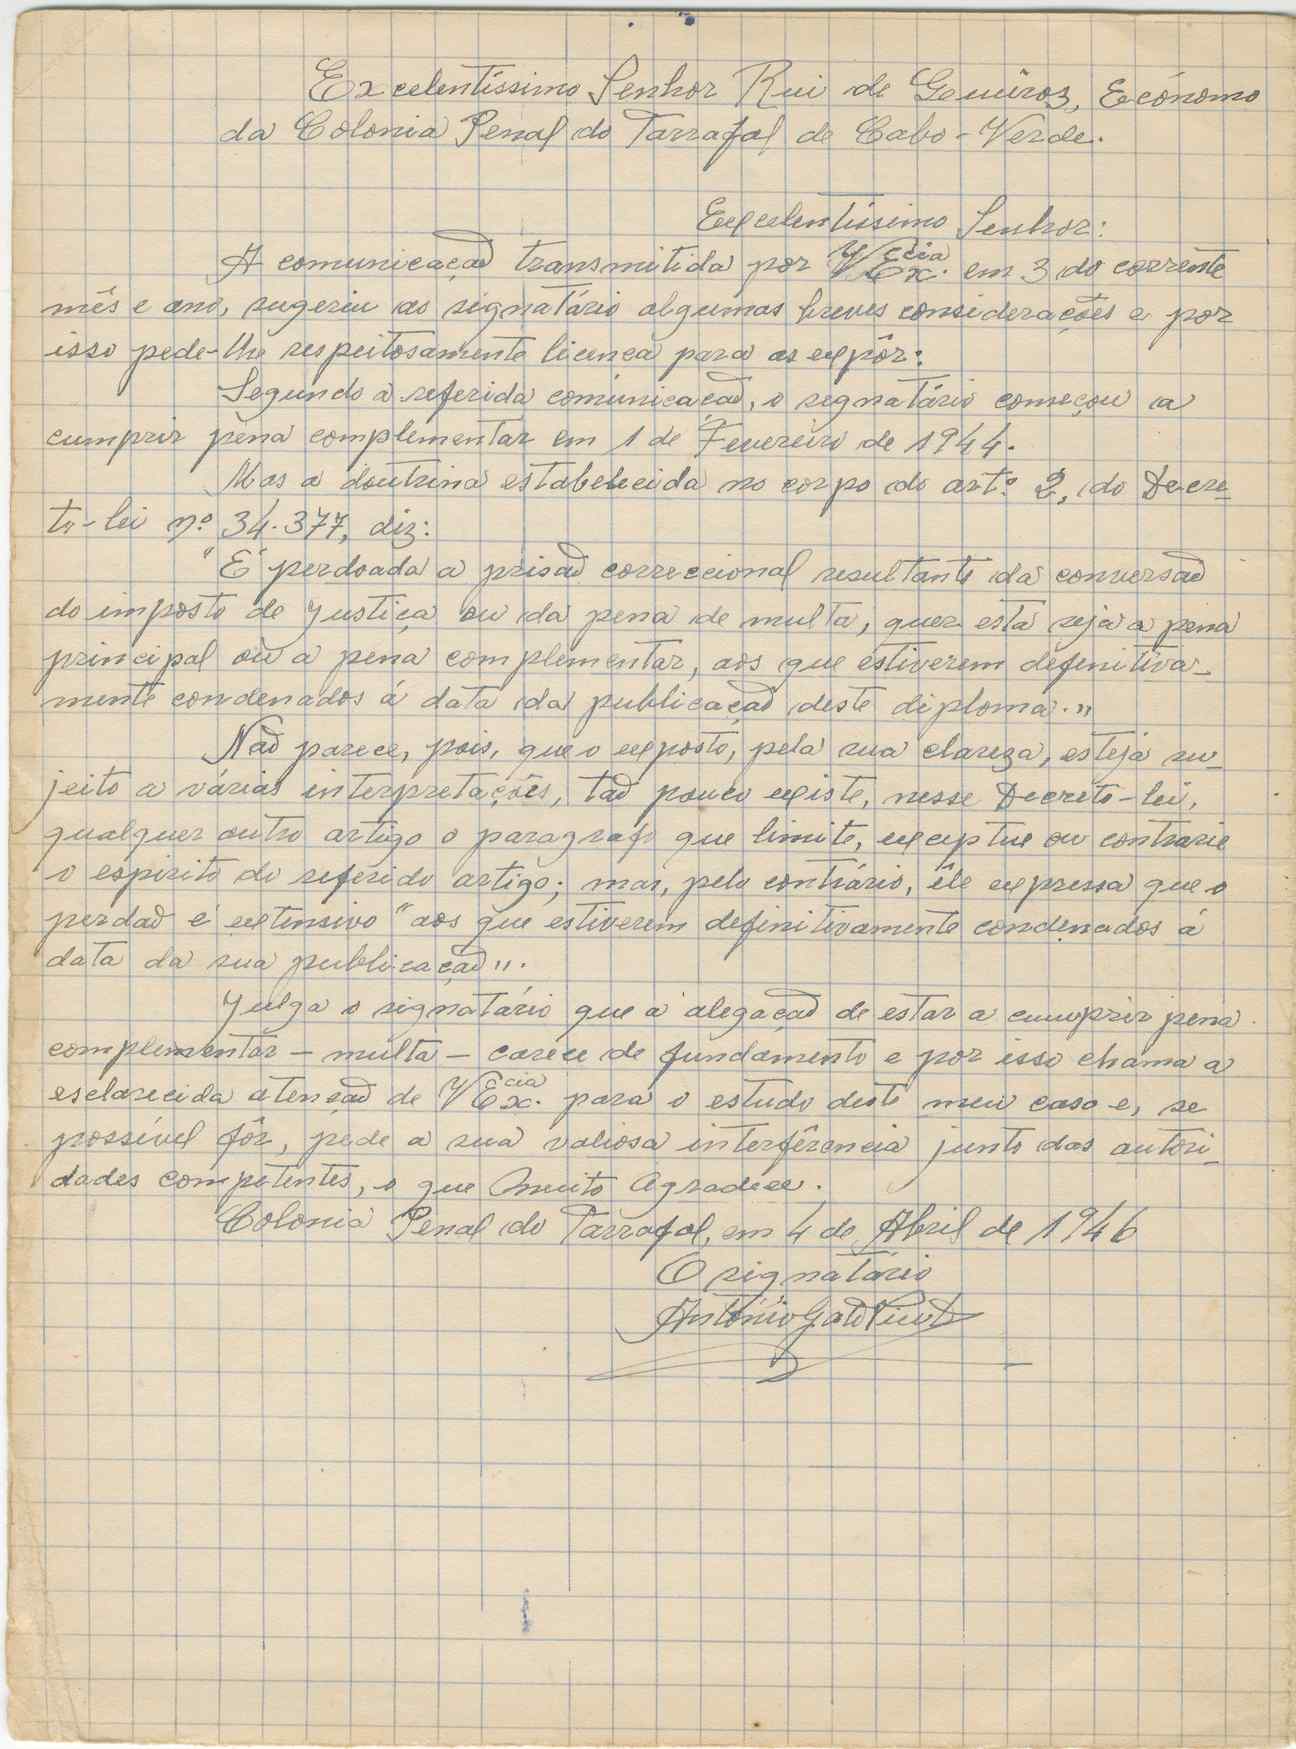 Excelentíssimo Senhor Rui de Queiroz, Ecónomo
da Colonia Penal do Tarrafal de Cabo-Verde.
Excelentíssimo Senhor:
A comunicação transmitida por V. Ex.cia em 3 do corrente
mês e ano, sugeriu ao signatário algumas breves considerações e por
isso pede-lhe respeitosamente licença para as expôr:
Segundo a referida comunicação, o signatário começou a
cumprir pena complementar em 1 de Fevereiro de 1944.
Mas a doutrina estabelecida no corpo do art.º 2, do Decre-
to-lei n.º 34.377, diz:
"É perdoada a prisão correccional resultante da conversão
do imposto de Justiça ou da pena de multa, quer esta seja a pena
principal ou a pena complementar, aos que estiverem definitiva-
mente condenados á data da publicação deste diploma.„
Não parece, pois, que o exposto, pela sua clareza, esteja su-
jeito a várias interpretações, tão pouco existe, nesse Decreto-lei,
qualquer outro artigo o paragrafo que limite, exceptue ou contrarie
o espirito do referido artigo; mas, pelo contrário, êle expressa que o
perdão é extensivo "aos que estiverem definitivamente condenados á
data da sua publicação„.
Julga o signatário que a alegação de estar a cumprir pena
complementar - multa - carece de fundamento e por isso chama a
esclarecida atenção de V Ex.cia para o estudo deste meu caso e, se
possível fôr, pede a sua valiosa interferência junto das autori-
dades competentes, o que Muito Agradece.
Colonia Penal do Tarrafal, em 4 de Abril de 1946
O signatário
António Gato Pinto